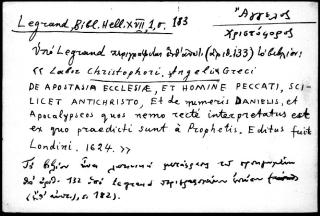 Legrand, Bibl. Hell. XVII, 1, σ. 183
Ἄγγελος
Χριστόφορος
Ὑπὸ Legrand περιγράφεται ἐνταῦθα (ἀριθ. 133) τὸ βιβλίον:
« Labor Christophori Angeli Greci
DE APOSTASIA ECCLESIÆ, ET HOMINE PECCATI, SCI-
LICET ANTICHRISTO, Et de numeris DANIELIS, et
Apocalypseos quos nemo rectè interpretatus est
ex quo praedicti sunt à Prophetis. Editus fuit
Londini. 1624. »
Τὸ βιβλίον εἶναι λατινικὴ μετάφρασις τοῦ
ὑπ' ἀριθ. 132 ὑπὸ Legrand
σ. 182).